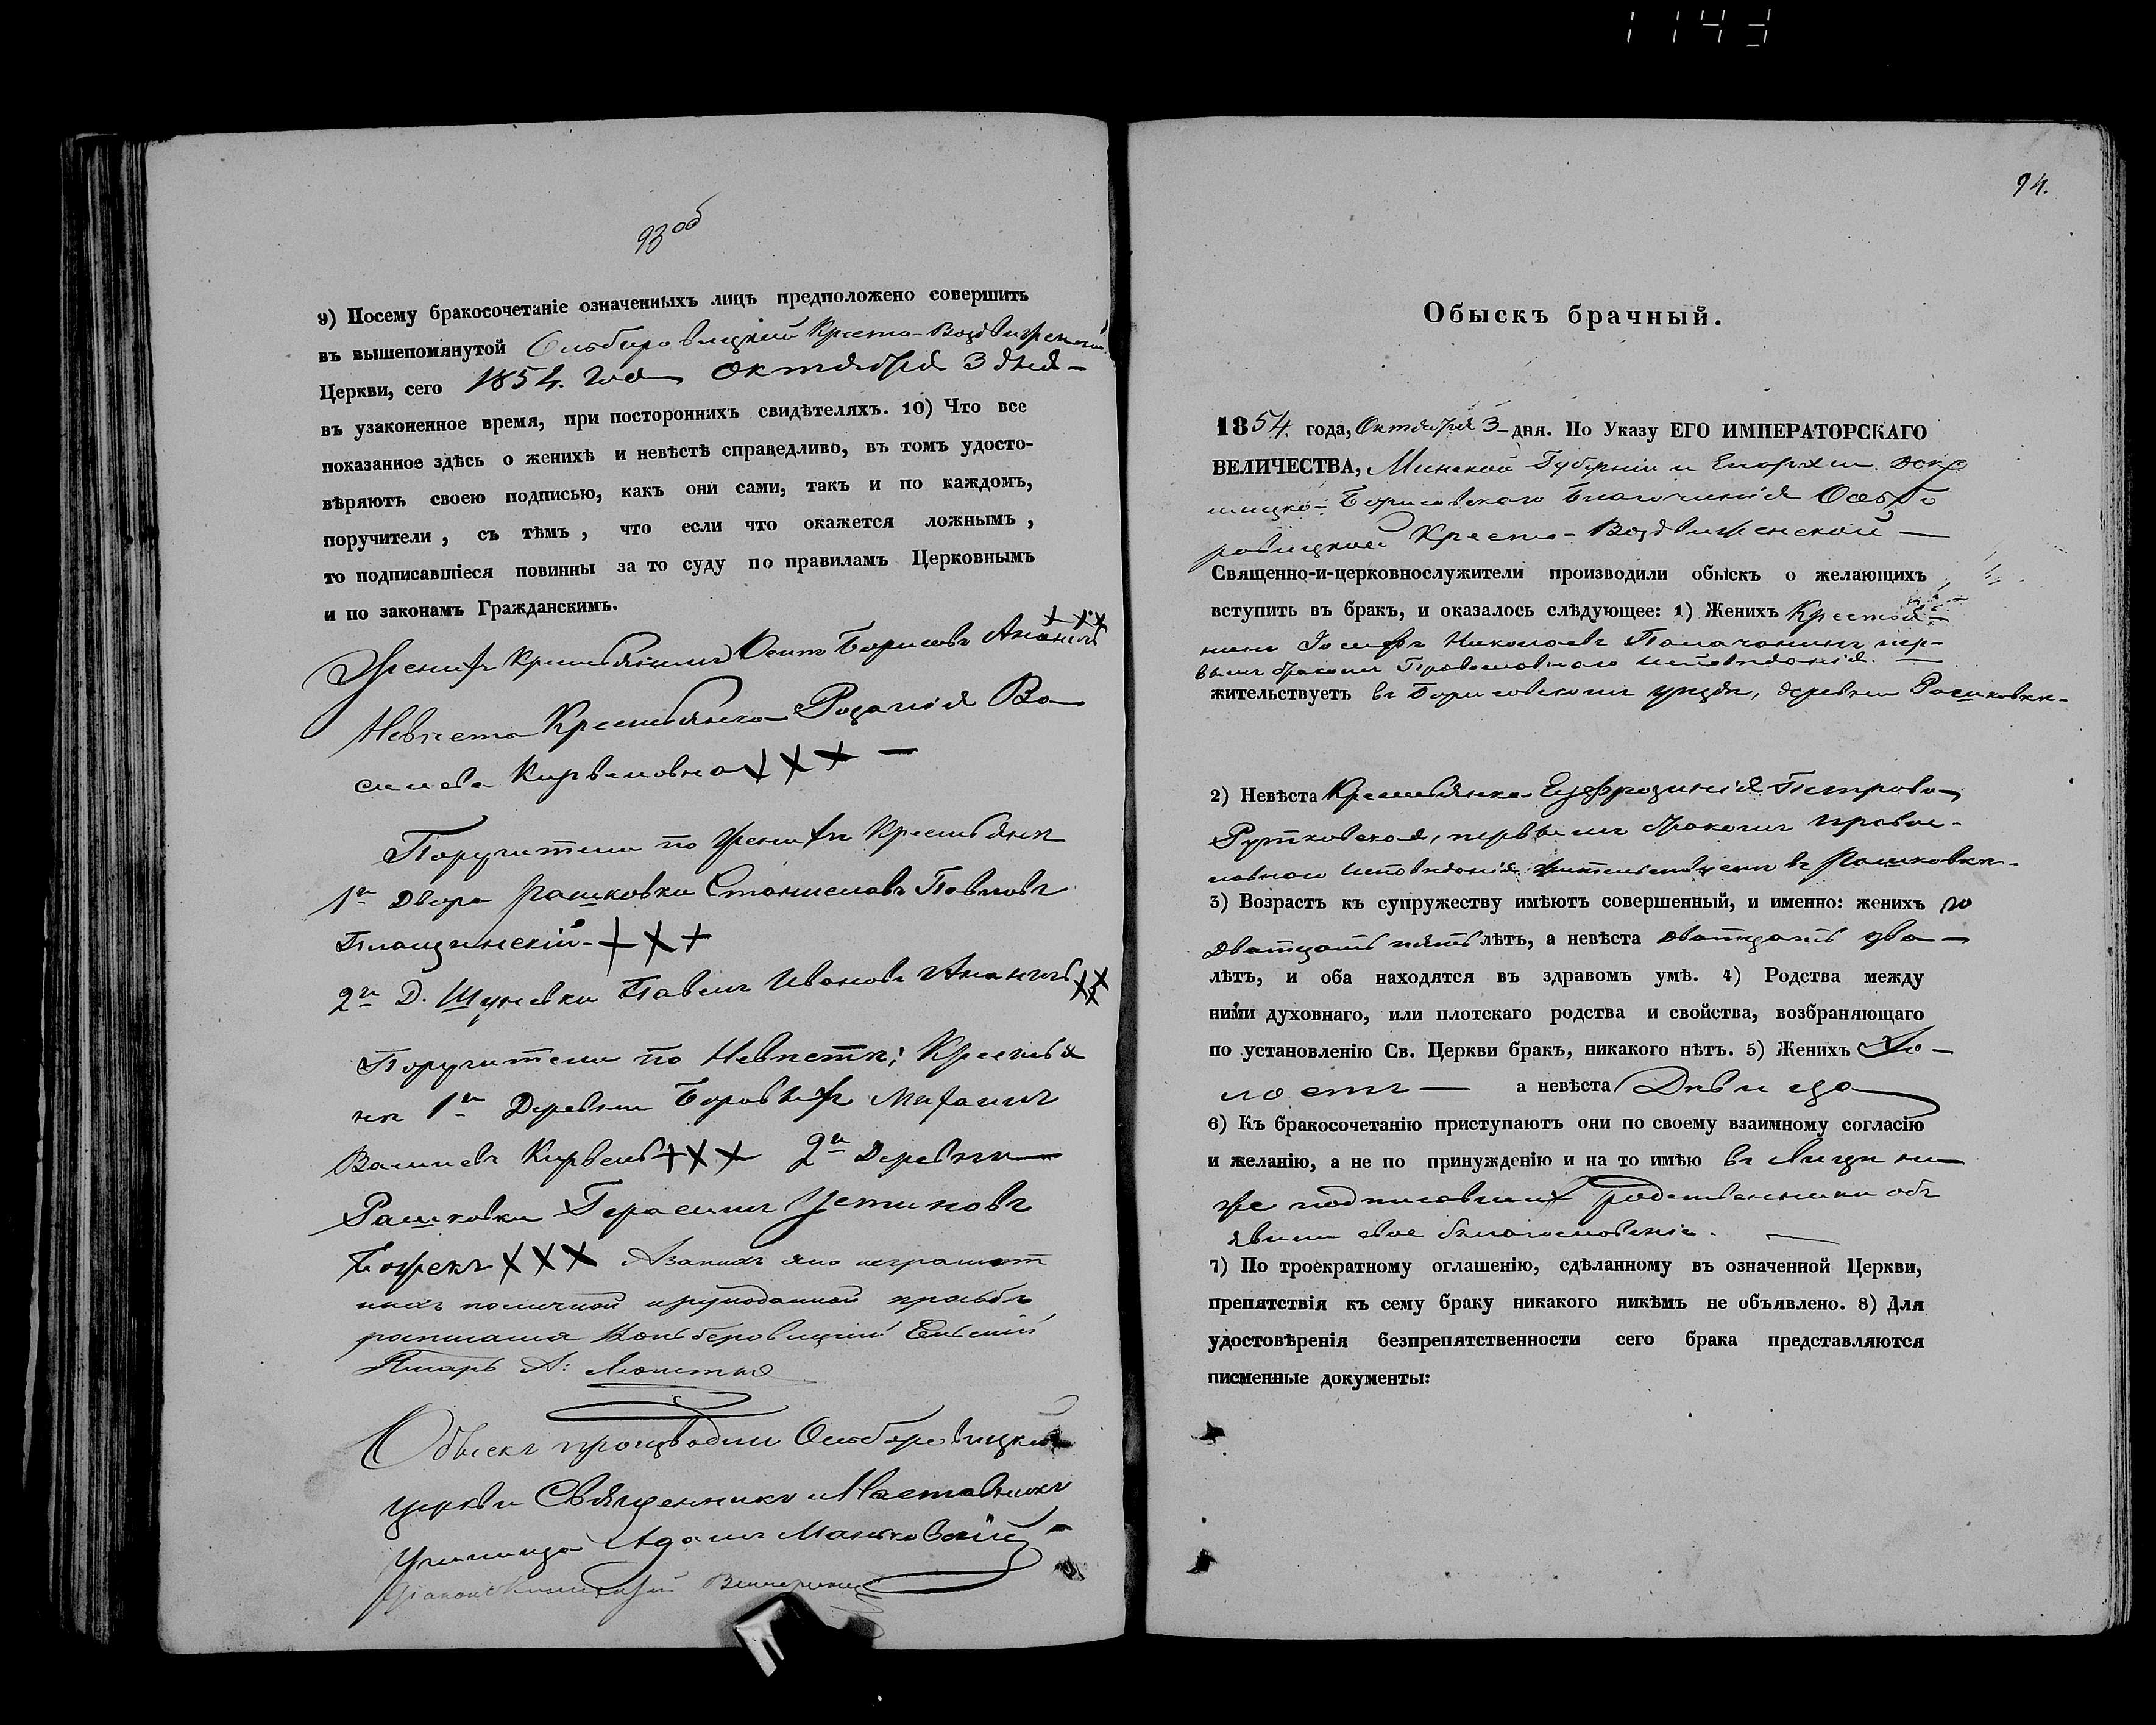 93 об
9) Посему бракосочетаніе означенныхъ лицъ предположено совершить
въ вышепомянутой Ольберовицкой Кресто-Воздвиженской
Церкви, сего 1854. года Октября 3 дня -
въ узаконенное время, при постороннихъ свидѣтеляхъ. 10) Что все
показанное здѣсь о женихѣ и невѣстѣ справедливо, въ томъ удосто-
вѣряютъ своею подписью, какъ они сами, такъ и по каждомъ,
поручители, съ тѣмъ, что если что окажется ложнымъ,
то подписавшіеся повинны за то суду по правиламъ Церковнымъ
и по законамъ Гражданскимъ.
Женихъ крестьянинъ Осипъ Борисовъ Ананичъ XXX
Невѣста Крестьянка Розалія Ва
силева Кирвеловна XXX —
Поручители по женихѣ Крестьяне
1й Двора Рашковки Станиславъ Павловъ
Плащинскій - XXX
2й Д. Шуневки Павелъ Ивановъ Ананичъ XXX
Поручители по Невѣстѣ; Крестья
не 1й Деревни Боровыхъ Михаилъ
Василевъ Кирвель XXX 2й Деревни
Рашковки Герасимъ Устиновъ
Божекъ XXX А за нихъ яко неграмот
ныхъ по личной и рукоданной прозьбѣ
росписался Сельскій
Писарь А:
Обыскъ производили Ольберовицкой
церкви Священникъ и Наставникъ
Училища Адамъ Маньковскій
94.
Обыскъ брачный.
1854. года, Октября 3 - дня. По Указу ЕГО ИМПЕРАТОРСКАГО
ВЕЛИЧЕСТВА, Минской Губерніи и Епархіи Док
шицко-Борисовскаго Благочинія Ольбе
ровицкой Кресто-Воздвиженской —
Священно-и-церковнослужители производили обыскъ о желающихъ
вступить въ бракъ, и оказалось слѣдующее: 1) Женихъ Крестья-
нинъ Іосифъ Николаевъ Палачанинъ пер-
вымъ бракомъ Православнаго исповѣданія. —
жительствуетъ въ Борисовскомъ уѣздѣ, деревни Рашковки -
2) Невѣста Крестьянка Ецфрозинія Петрова
Рутковская, первымъ бракомъ правос-
лавнаго исповѣданія жительствуетъ въ Рашковки -
3) Возрастъ къ супружеству имѣютъ совершенный, и именно: женихъ
Дватцать пять лѣтъ, а невѣста дватцать два —
лѣтъ, и оба находятся въ здравомъ умѣ. 4) Родства между
ними духовнаго, или плотскаго родства и свойства, возбраняющаго
по установленію Св. Церкви бракъ, никакого нѣтъ. 5) Женихъ Хо -
лостъ — а невѣста Дѣвица
6) Къ бракосочетанію приступаютъ они по своему взаимному согласію
и желанію, а не по принужденію и на то имѣю въ лицѣ ни
же подписавшихъ родственники объ
явили свое благословеніе. —
7) По троекратному оглашенію, сдѣланному въ означенной Церкви,
препятствія къ сему браку никакого никѣмъ не объявлено. 8) Для
удостовѣренія безпрепятственности сего брака представляются
писменные документы: